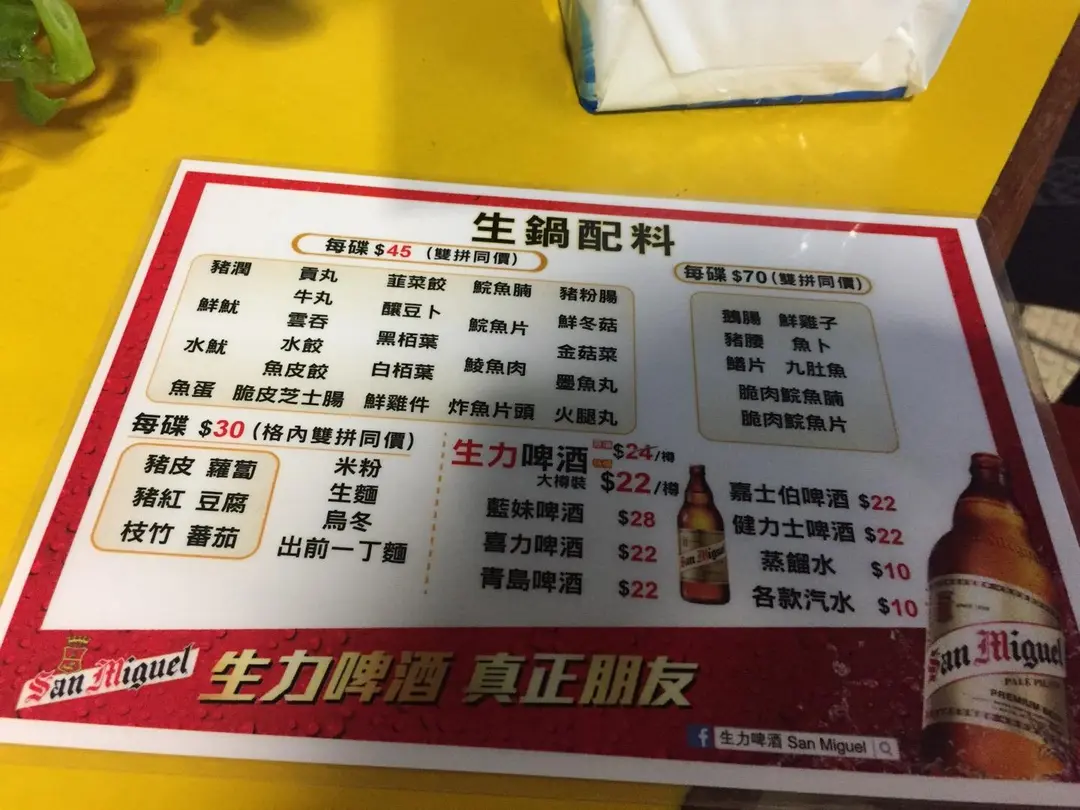 生鍋配料
每碟 $45 (雙拼同價)
豬潤 貢丸 韮菜餃 鯇魚腩 豬粉腸
鮮魷 牛丸 釀豆卜 鯇魚片 鮮冬菇
雲吞 黑栢葉 金菇菜
水魷 水餃 白栢葉 鯪魚肉 墨魚丸
魚皮餃
魚蛋 脆皮芝士腸 鮮雞件 炸魚片頭 火腿丸
每碟 $70 (雙拼同價)
鵝腸 鮮雞子
豬腰 魚卜
鱔片 九肚魚
脆肉鯇魚腩
脆肉鯇魚片
每碟 $30 (格內雙拼同價)
豬皮 蘿蔔
豬紅 豆腐
枝竹 蕃茄
米粉
生麵
烏冬
出前一丁麵
生力啤酒 $24/樽
大樽裝 $22/樽
藍妹啤酒 $28
喜力啤酒 $22
青島啤酒 $22
嘉士伯啤酒 $22
健力士啤酒 $22
蒸餾水 $10
各款汽水 $10
San Miguel
San Miguel
生力啤酒 真正朋友
San Miguel
PALE PILSEN
f 生力啤酒 San Miguel